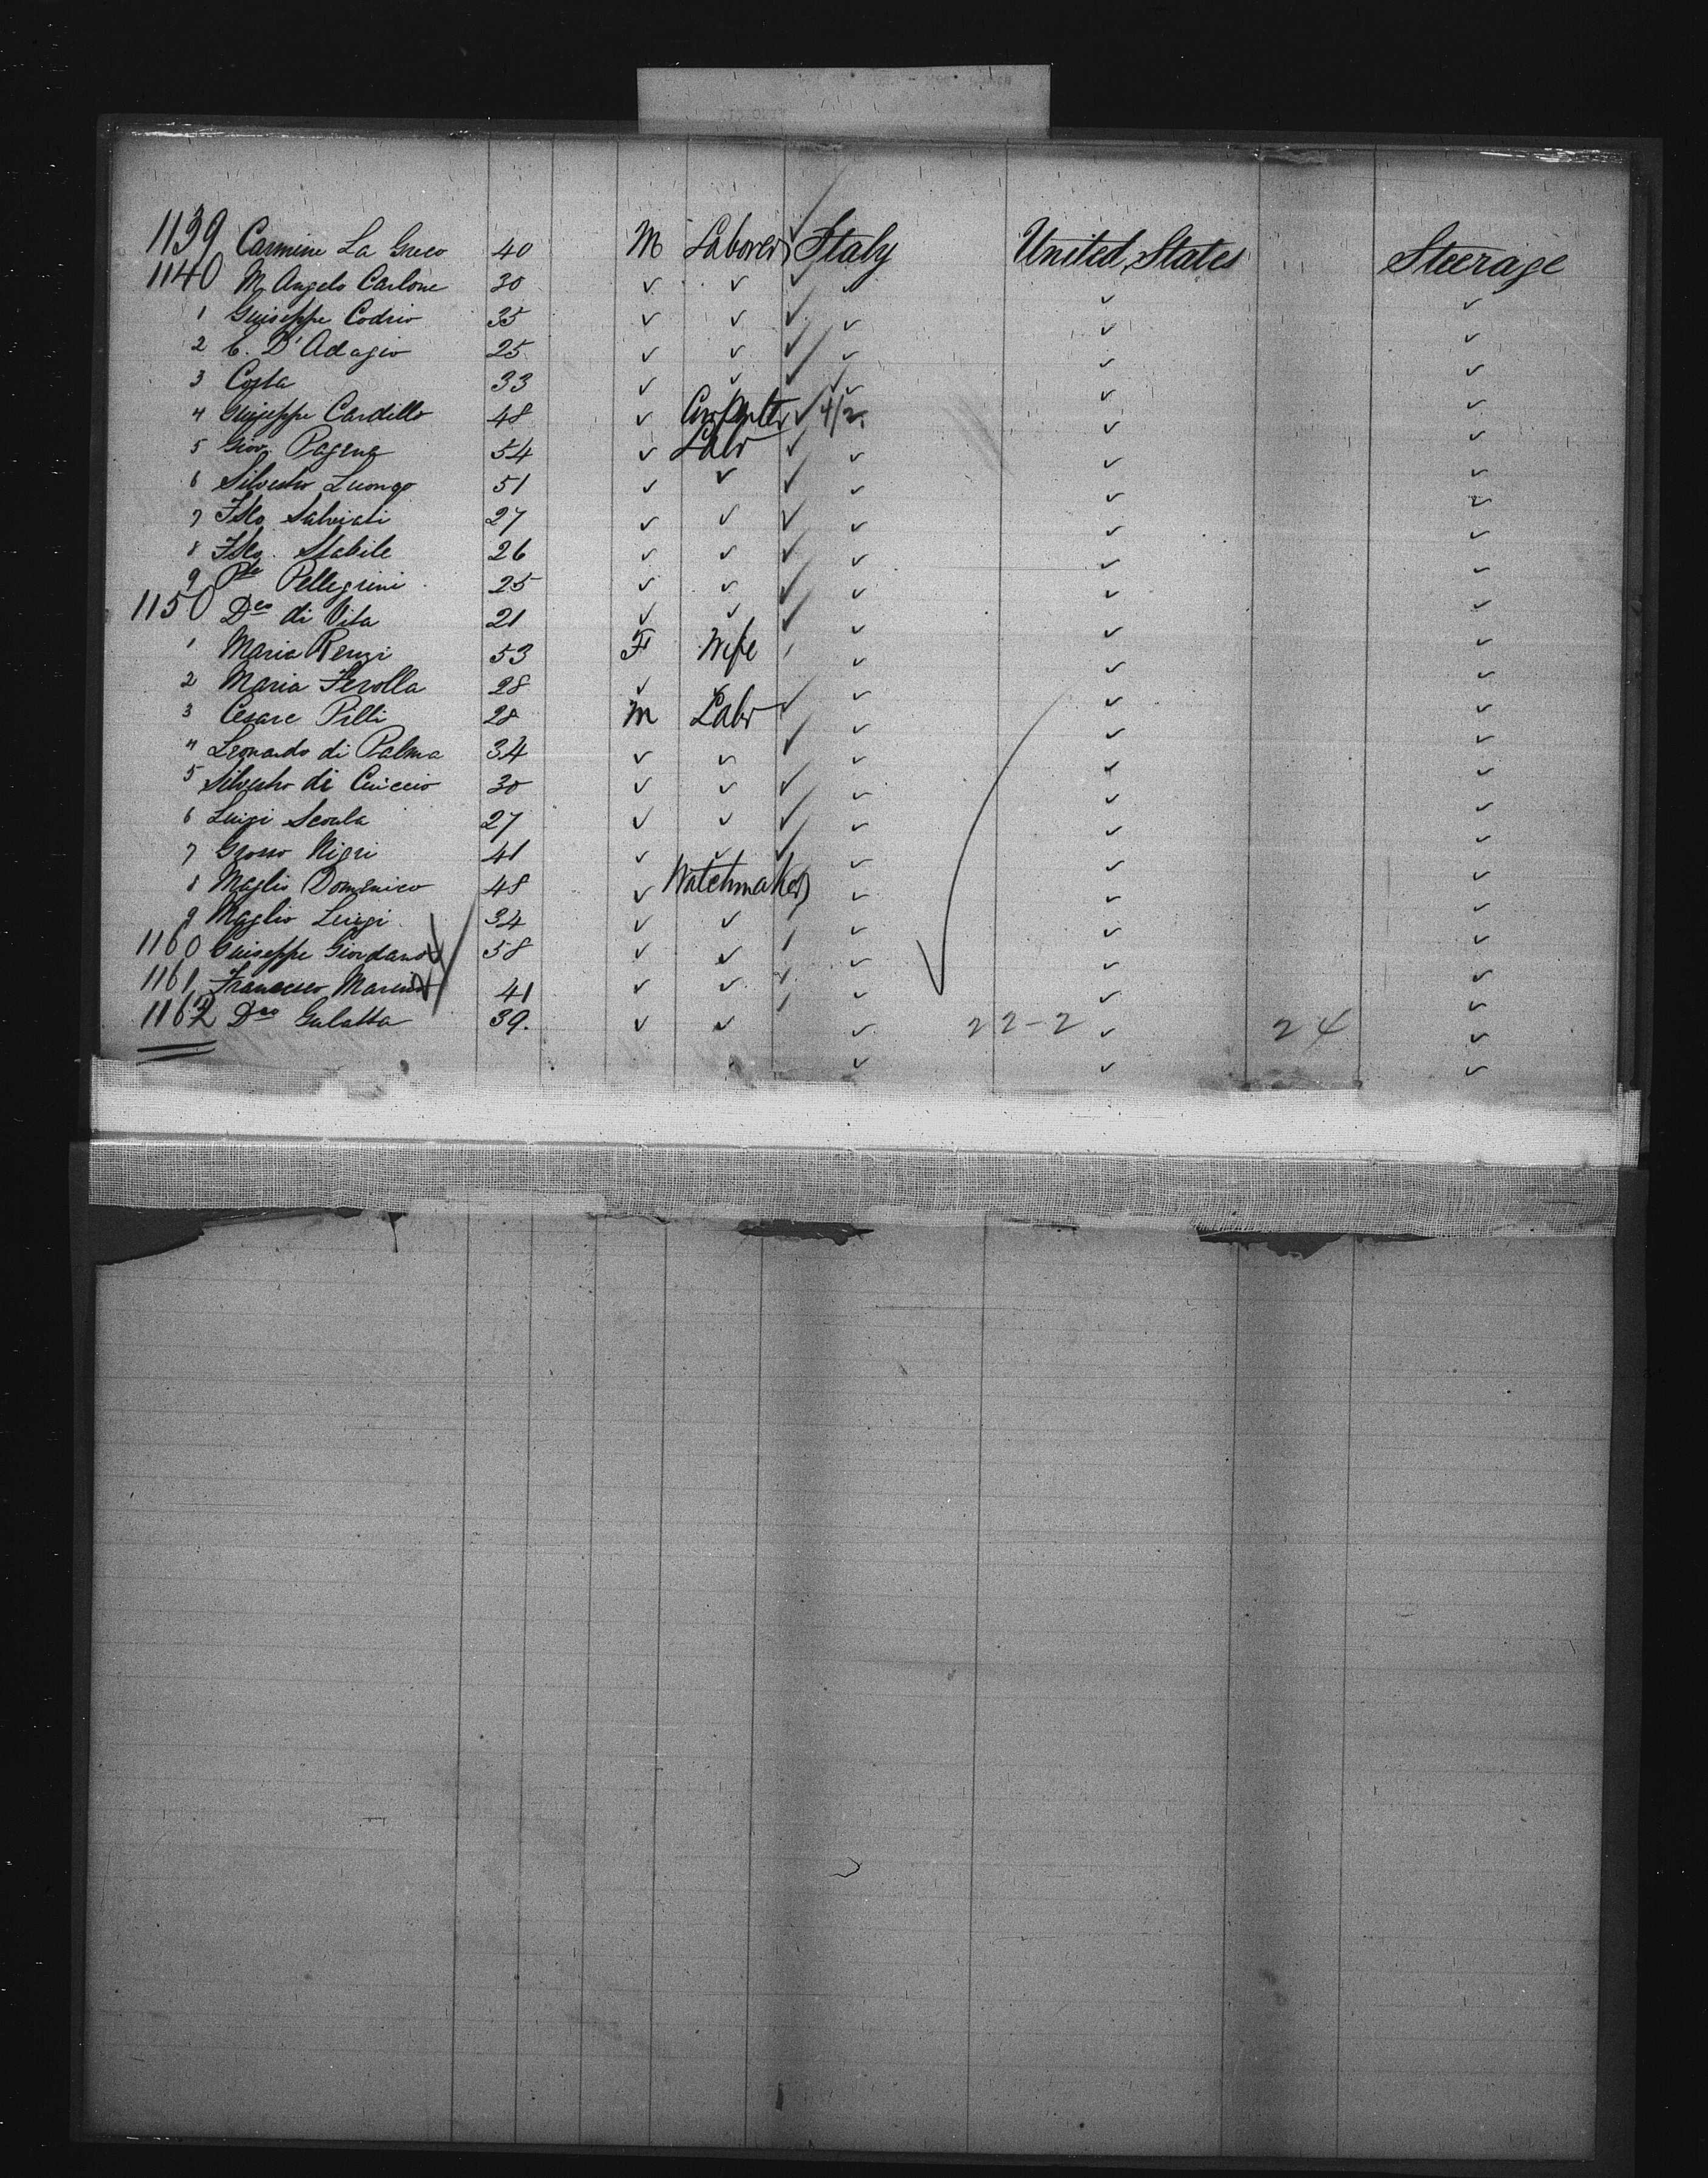 1139 Carmine La Greco 40 M Laborer Italy United States Steerage
1140 M. Angelo Carlone 30 ✓ ✓ ✓ ✓ ✓
1 Guiseppe Codrio 35 ✓ ✓ ✓ ✓ ✓
2 C. D'Adagio 25 ✓ ✓ ✓ ✓ ✓
3 Costa 33 ✓ ✓ ✓ ✓ ✓
4 Guiseppe Cardillo 48 ✓ Carpenter 4/2. ✓ ✓
5 Giov. Pagena 54 ✓ Labr ✓ ✓ ✓
6 Silvestro Luongo 51 ✓ ✓ ✓ ✓ ✓
7 Salviati 27 ✓ ✓ ✓ ✓ ✓
8 Stabile 26 ✓ ✓ ✓ ✓ ✓
9 Pellegrini 25 ✓ ✓ ✓ ✓ ✓
1150 Dco di Vita 21 ✓ ✓ ✓ ✓ ✓
1 Maria Renzi 53 F Wife ✓ ✓ ✓
2 Maria Ferolla 28 ✓ ✓ ✓ ✓ ✓
3 Cesare Pilli 28 M Labr ✓ ✓ ✓
4 Leonardo di Palma 34 ✓ ✓ ✓ ✓ ✓
5 Silvestro di Cuiccio 30 ✓ ✓ ✓ ✓ ✓
6 Luigi Scoula 27 ✓ ✓ ✓ ✓ ✓
7 Grosso Nigri 41 ✓ ✓ ✓ ✓ ✓
8 Maglio Domenico 48 ✓ Watchmaker ✓ ✓ ✓
9 Maglio Luigi 34 ✓ ✓ ✓ ✓ ✓
1160 Guiseppe Giordano 58 ✓ ✓ ✓ ✓ ✓
1161 Francesco Marino 41 ✓ ✓ ✓ ✓ ✓
1162 Dco Galatta 39. ✓ ✓ ✓ 22-2 ✓ 24 ✓